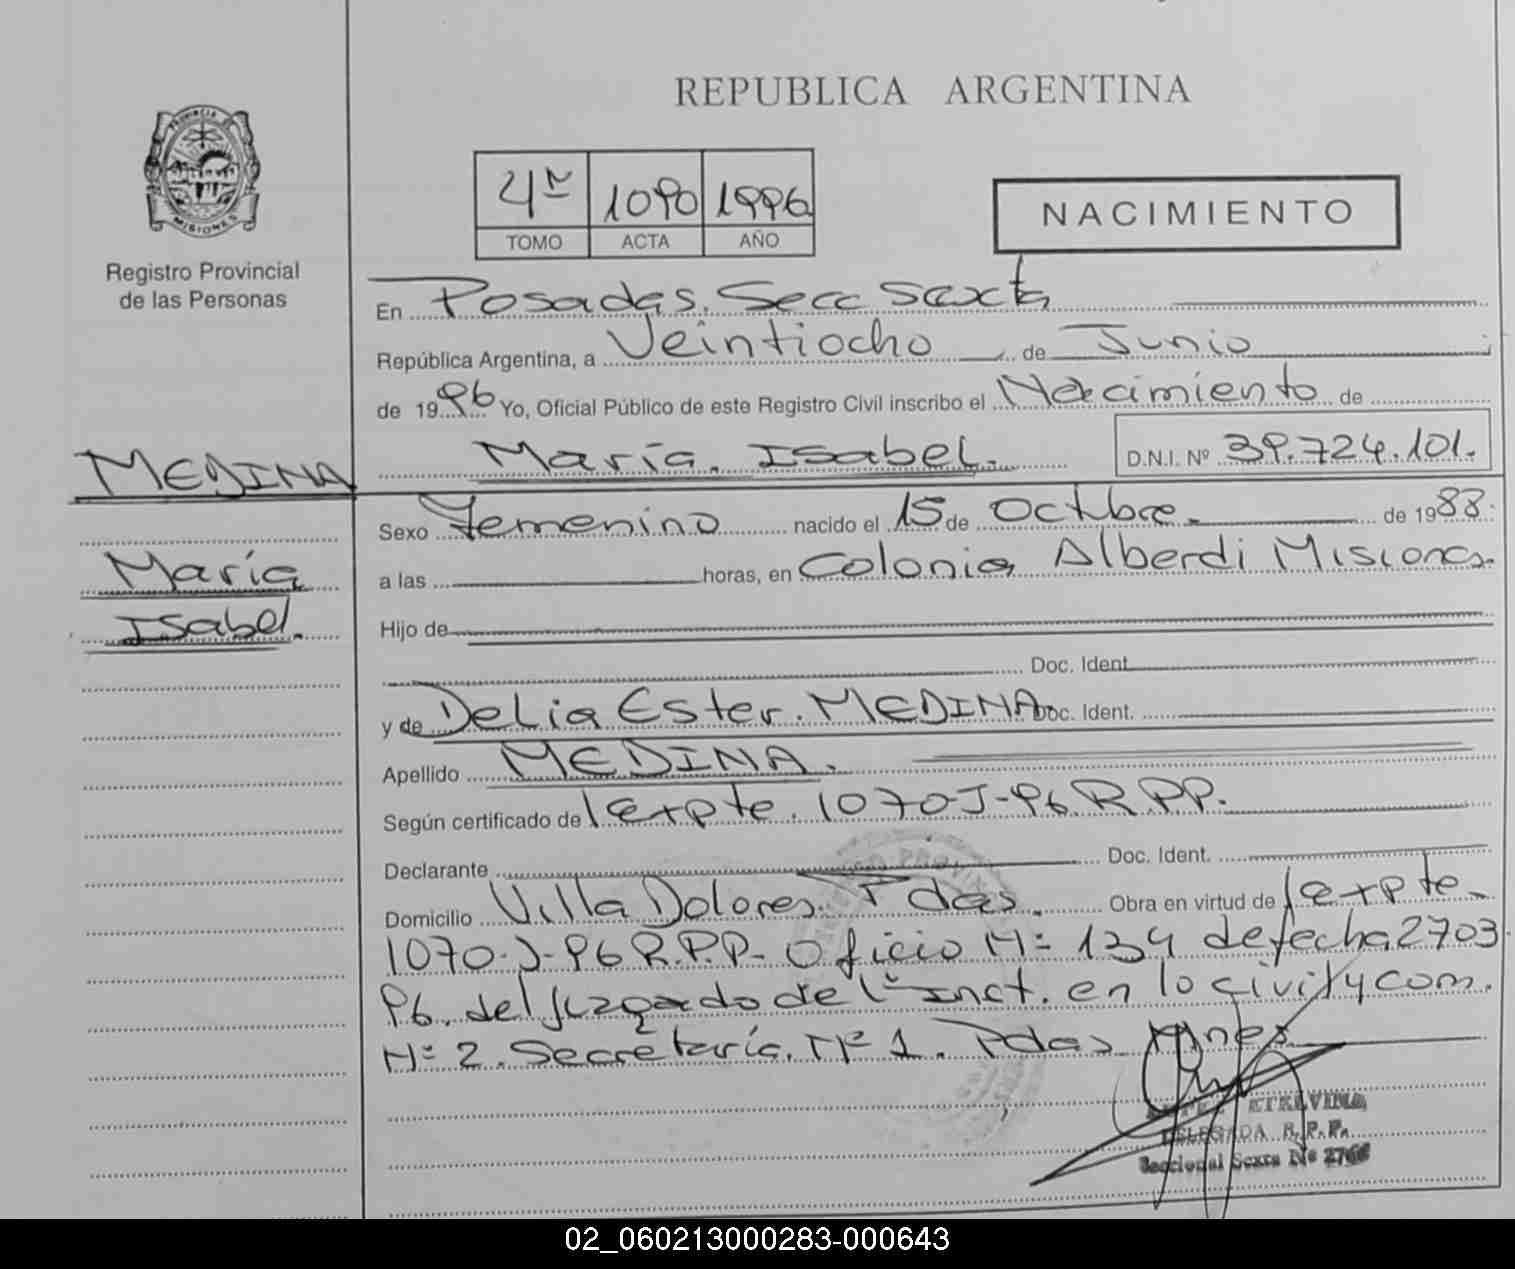 REPUBLICA ARGENTINA
PROVINCIA DE
MISIONES
Registro Provincial
de las Personas
4º 1090 1996
TOMO ACTA AÑO
NACIMIENTO
En Posadas. Secc Sexta
República Argentina, a Veintiocho de Junio
de 1996 Yo, Oficial Público de este Registro Civil inscribo el Nacimiento de
María. Isabel. D.N.I. Nº 39.724.101.
MEDINA
María
Isabel.
Sexo Femenino nacido el 15 de Octubre. de 1988.
a las horas, en Colonia Alberdi Misiones.
Hijo de
Doc. Ident.
y de Delia Ester. MEDINA. Doc. Ident.
Apellido MEDINA.
Según certificado de expte. 1070-J-96. R.P.P.
Declarante Doc. Ident.
Domicilio Villa Dolores. Pdas. Obra en virtud de expte.
1070-J-96 R.P.P- Oficio Nº 134 de fecha 2703
96. del Juzgado de 1º Inct. en lo civil y com.
Nº 2. Secretaría. Nº 1. Pdas Mnes
ETELVINA
DELEGADA R.P.P.
Seccional Sexta Nº
02_060213000283-000643